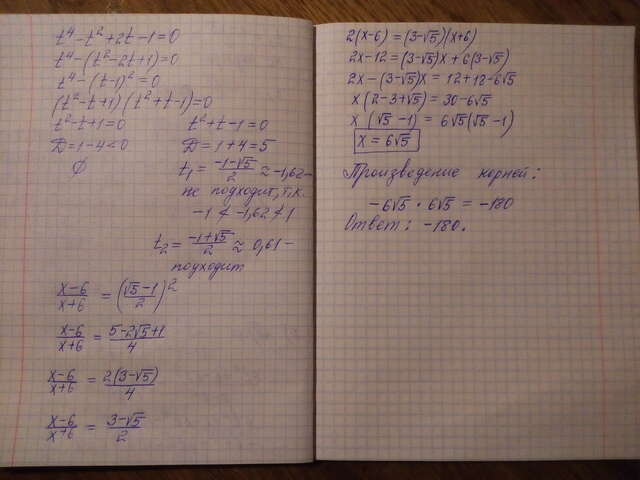 t⁴ - t² + 2t - 1 = 0
t⁴ - (t² - 2t + 1) = 0
t⁴ - (t - 1)² = 0
(t² - t + 1)(t² + t - 1) = 0
t² - t + 1 = 0   t² + t - 1 = 0
D = 1 - 4 < 0   D = 1 + 4 = 5
∅   t₁ = (-1 - √5)/2 ≈ -1,62 -
не подходит, т.к.
-1 ≮ -1,62 ≮ 1
t₂ = (-1 + √5)/2 ≈ 0,61 -
подходит
(x - 6)/(x + 6) = ((√5 - 1)/2)²
(x - 6)/(x + 6) = (5 - 2√5 + 1)/4
(x - 6)/(x + 6) = 2(3 - √5)/4
(x - 6)/(x + 6) = (3 - √5)/2
2(x - 6) = (3 - √5)(x + 6)
2x - 12 = (3 - √5)x + 6(3 - √5)
2x - (3 - √5)x = 12 + 18 - 6√5
x(2 - 3 + √5) = 30 - 6√5
x(√5 - 1) = 6√5(√5 - 1)
x = 6√5
Произведение корней:
-6√5 · 6√5 = -180
Ответ: -180.